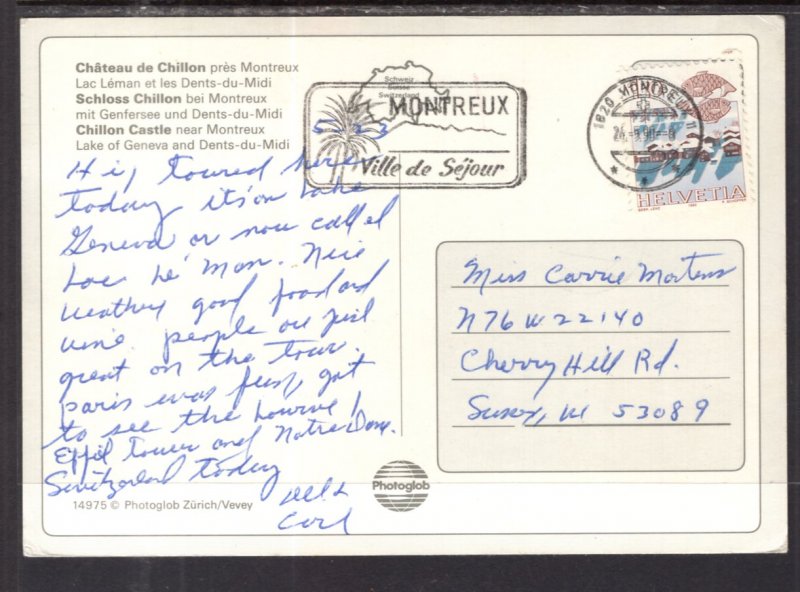 Château de Chillon près Montreux
Lac Léman et les Dents-du-Midi
Schloss Chillon bei Montreux
mit Genfersee und Dents-du-Midi
Chillon Castle near Montreux
Lake of Geneva and Dents-du-Midi
5-23
Hi, toured here
today it's on Lake
Geneva or now called
Lac Le' Man. Nice
weather good food and
wine. people are just
great on the tour.
paris was fun, got
to see the Louvre!
Effil Tower and Notre Dame.
Switzerland today
Carl
14975 © Photoglob Zürich/Vevey
Photoglob
Schweiz
Suisse
Switzerland
MONTREUX
Ville de Séjour
1820 MONTREUX
HELVETIA
Miss Carrie Mortens
N76 W22140
Cherry Hill Rd.
Sussex, WI 53089